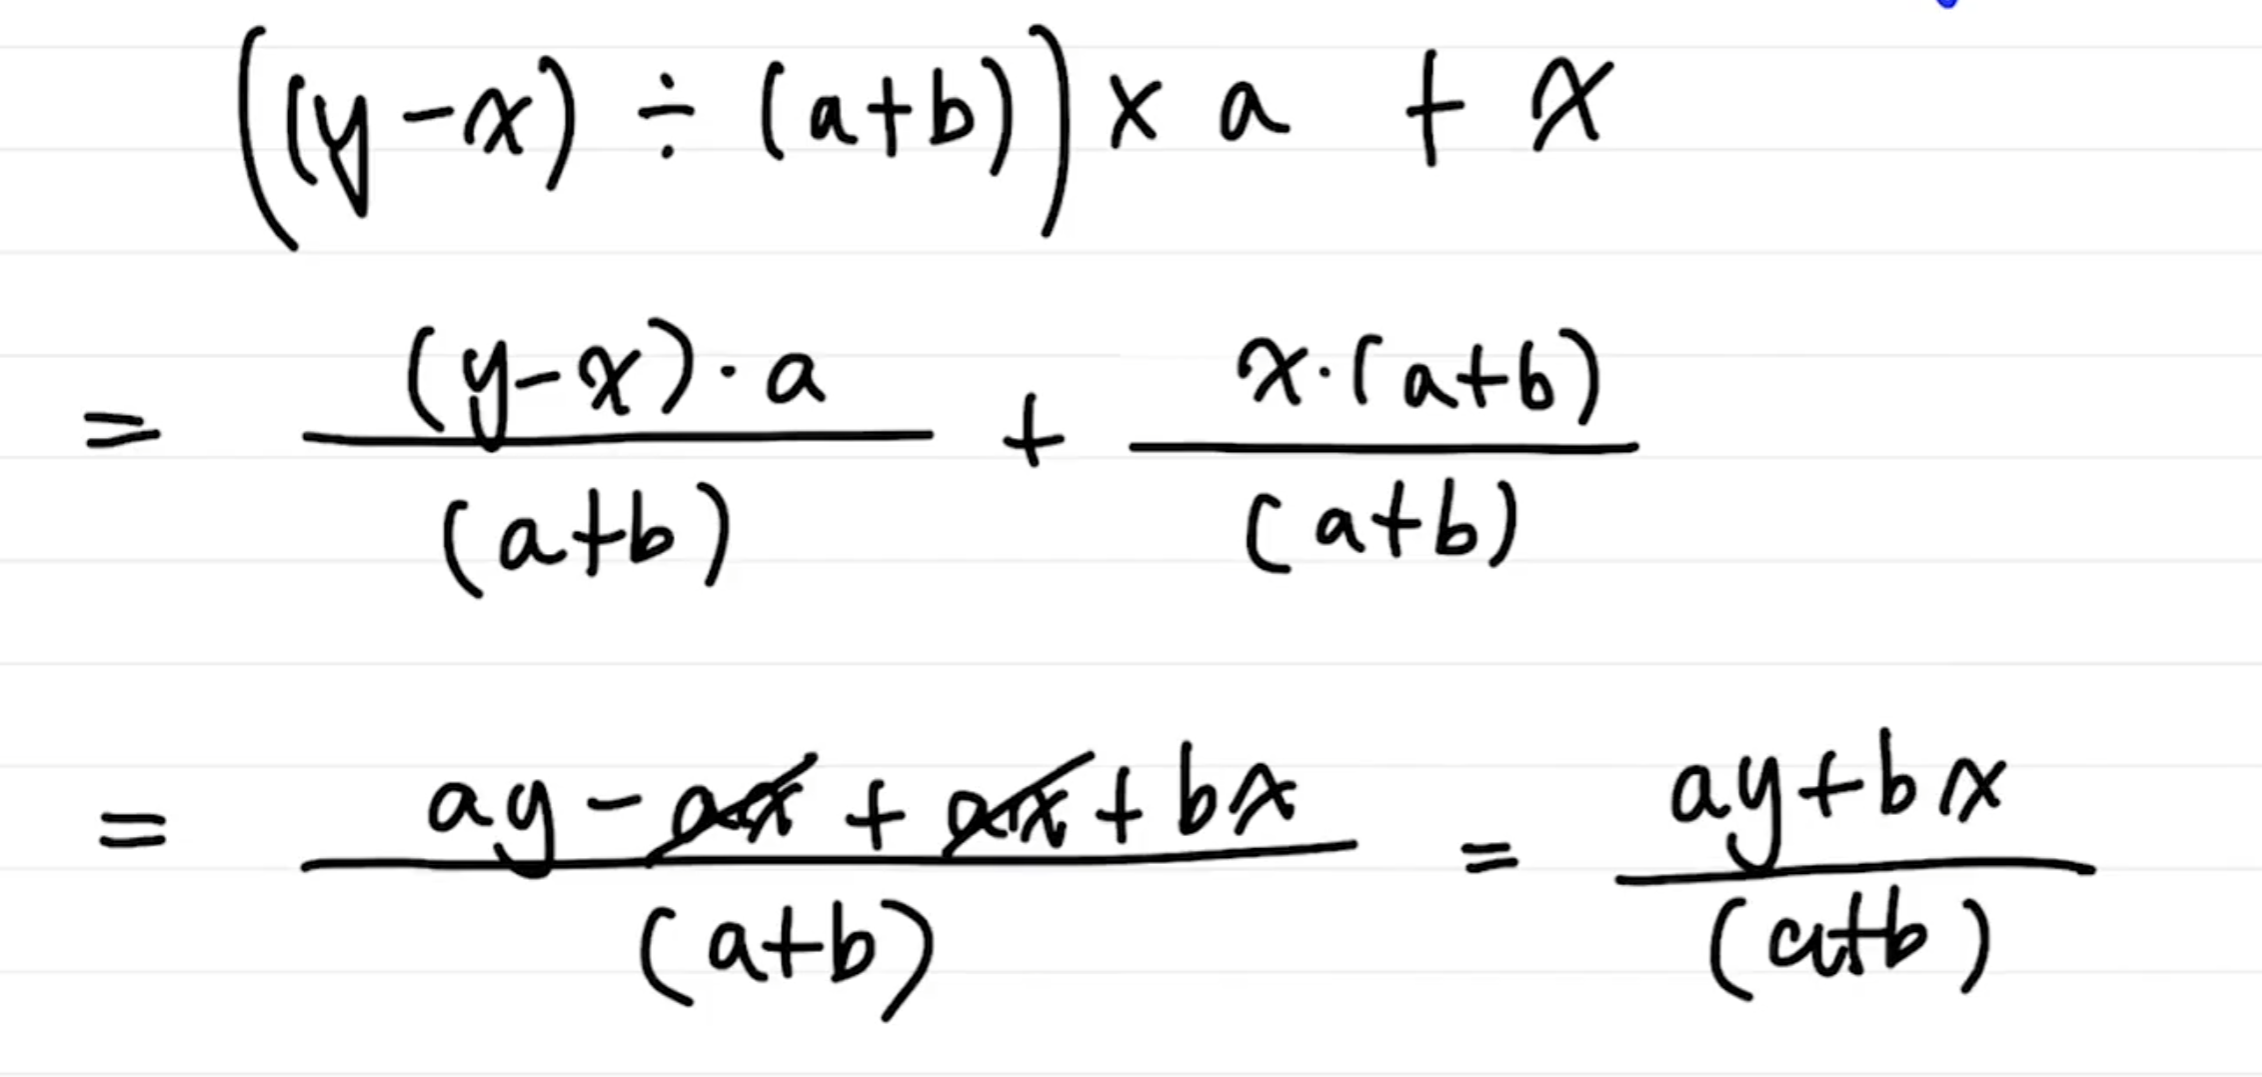 ((y-x) ÷ (a+b)) × a + x
= (y-x)·a / (a+b) + x·(a+b) / (a+b)
= ay - ax + ax + bx / (a+b) = ay+bx / (a+b)